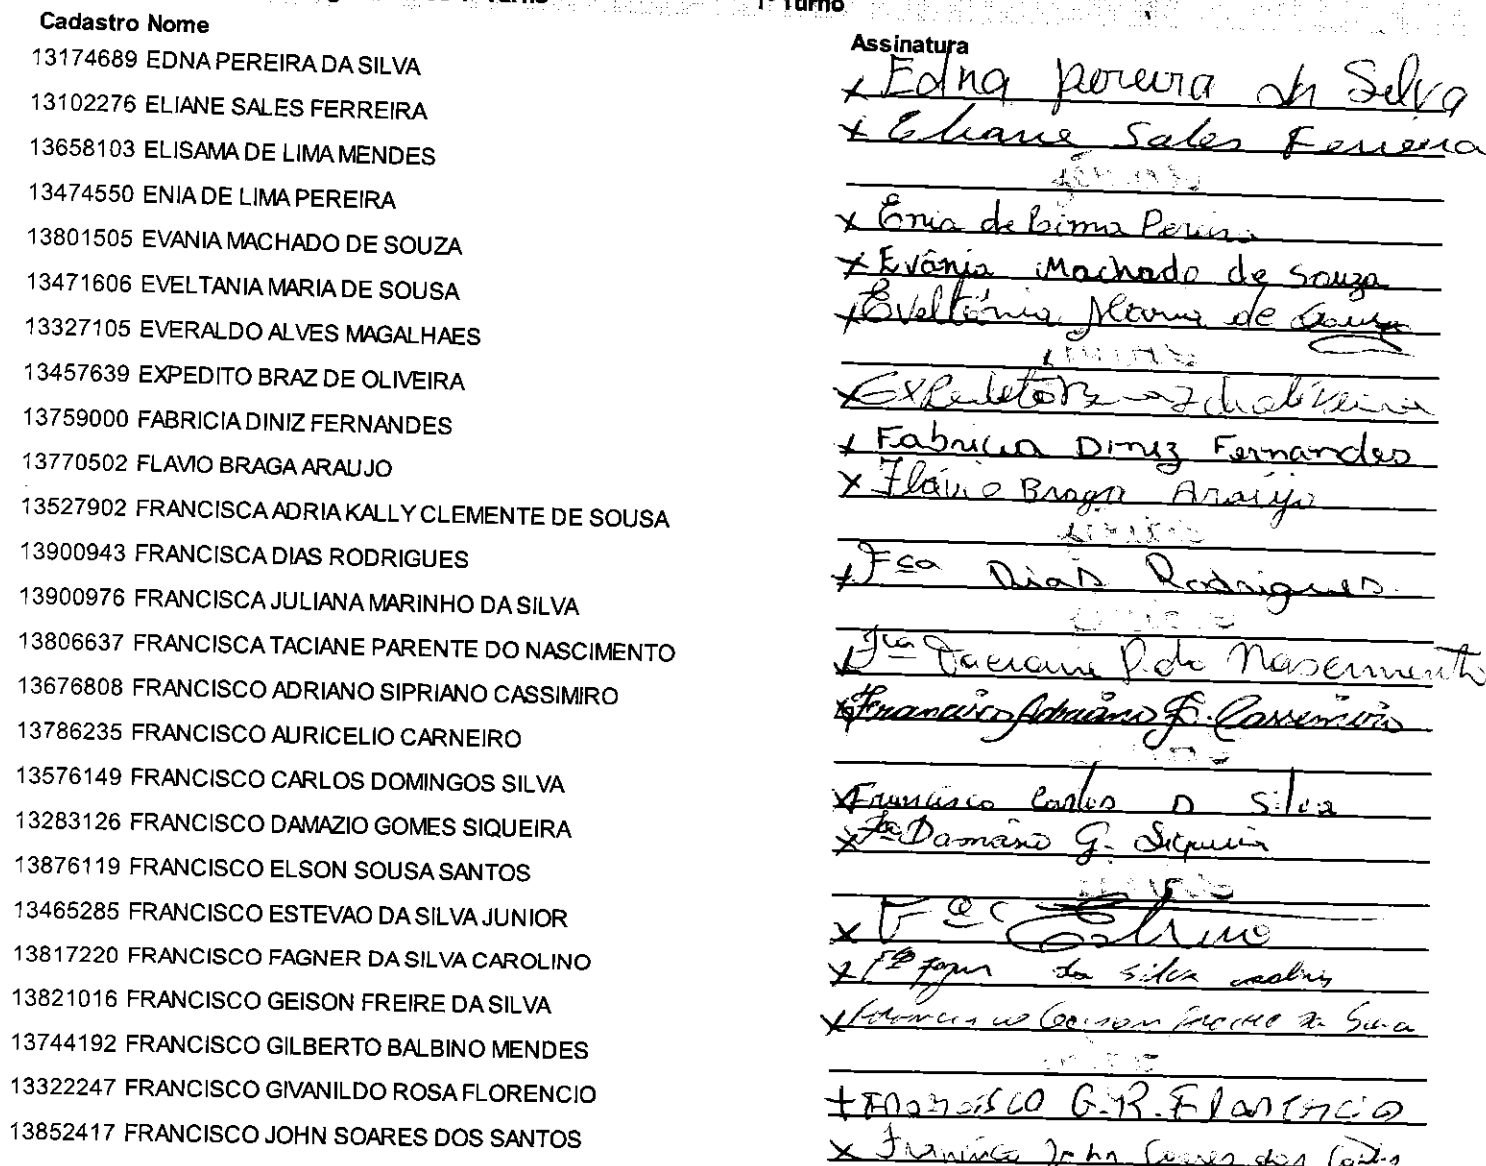 Turno
1º Turno
Cadastro Nome
Assinatura
13174689 EDNA PEREIRA DA SILVA
Edna pereira da Silva
13102276 ELIANE SALES FERREIRA
x Eliane Sales Ferreira
13658103 ELISAMA DE LIMA MENDES
13474550 ENIA DE LIMA PEREIRA
x Enia de Lima Pereira
13801505 EVANIA MACHADO DE SOUZA
x Evânia Machado de Souza
13471606 EVELTANIA MARIA DE SOUSA
x Eveltânia Maria de Sousa
13327105 EVERALDO ALVES MAGALHAES
13457639 EXPEDITO BRAZ DE OLIVEIRA
x Expedito Braz de Oliveira
13759000 FABRICIA DINIZ FERNANDES
x Fabricia Diniz Fernandes
13770502 FLAVIO BRAGA ARAUJO
x Flávio Braga Araújo
13527902 FRANCISCA ADRIA KALLY CLEMENTE DE SOUSA
13900943 FRANCISCA DIAS RODRIGUES
x Fca Dias Rodrigues.
13900976 FRANCISCA JULIANA MARINHO DA SILVA
13806637 FRANCISCA TACIANE PARENTE DO NASCIMENTO
x Fca Taciane P. do Nascimento
13676808 FRANCISCO ADRIANO SIPRIANO CASSIMIRO
x Francisco Adriano S. Cassimiro
13786235 FRANCISCO AURICELIO CARNEIRO
13576149 FRANCISCO CARLOS DOMINGOS SILVA
x Francisco Carlos D Silva
13283126 FRANCISCO DAMAZIO GOMES SIQUEIRA
x Fco Damásio G. Siqueira
13876119 FRANCISCO ELSON SOUSA SANTOS
13465285 FRANCISCO ESTEVAO DA SILVA JUNIOR
x
13817220 FRANCISCO FAGNER DA SILVA CAROLINO
x da Silva
13821016 FRANCISCO GEISON FREIRE DA SILVA
x Francisco Geison Freire da Silva
13744192 FRANCISCO GILBERTO BALBINO MENDES
13322247 FRANCISCO GIVANILDO ROSA FLORENCIO
x Francisco G.R. Florencio
13852417 FRANCISCO JOHN SOARES DOS SANTOS
x Francisco John Soares dos Santos